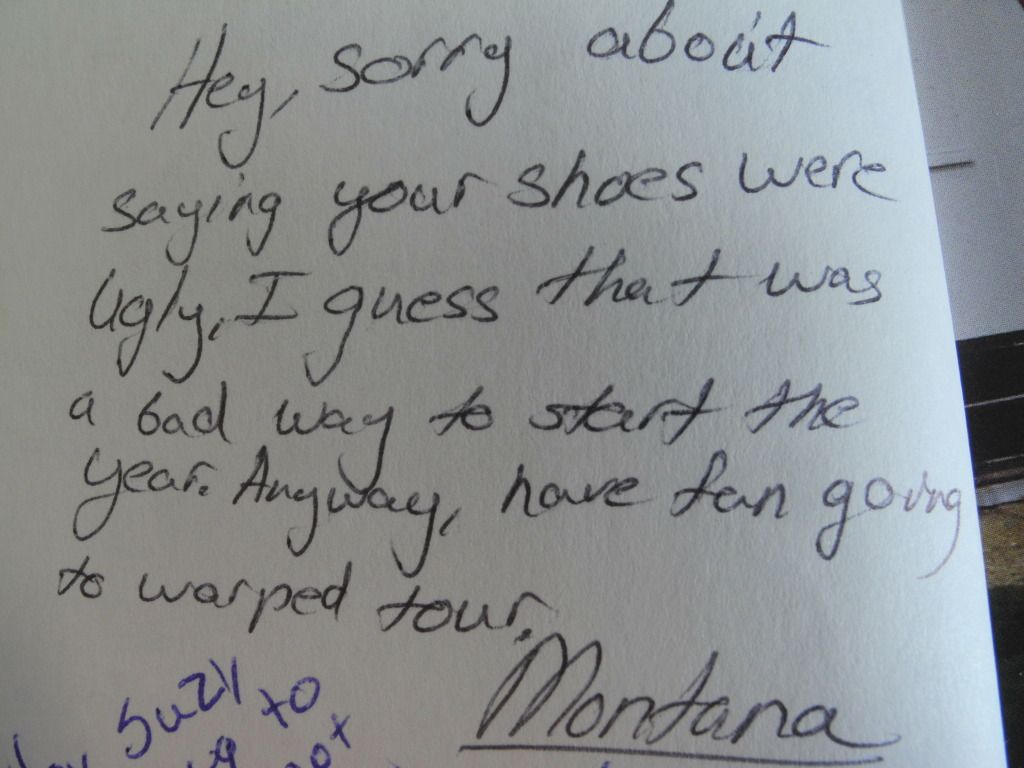 Hey, sorry about
saying your shoes were
Ugly, I guess that was
a bad way to start the
year. Anyway, have fun going
to warped tour.
Montana
Suzy xo
x